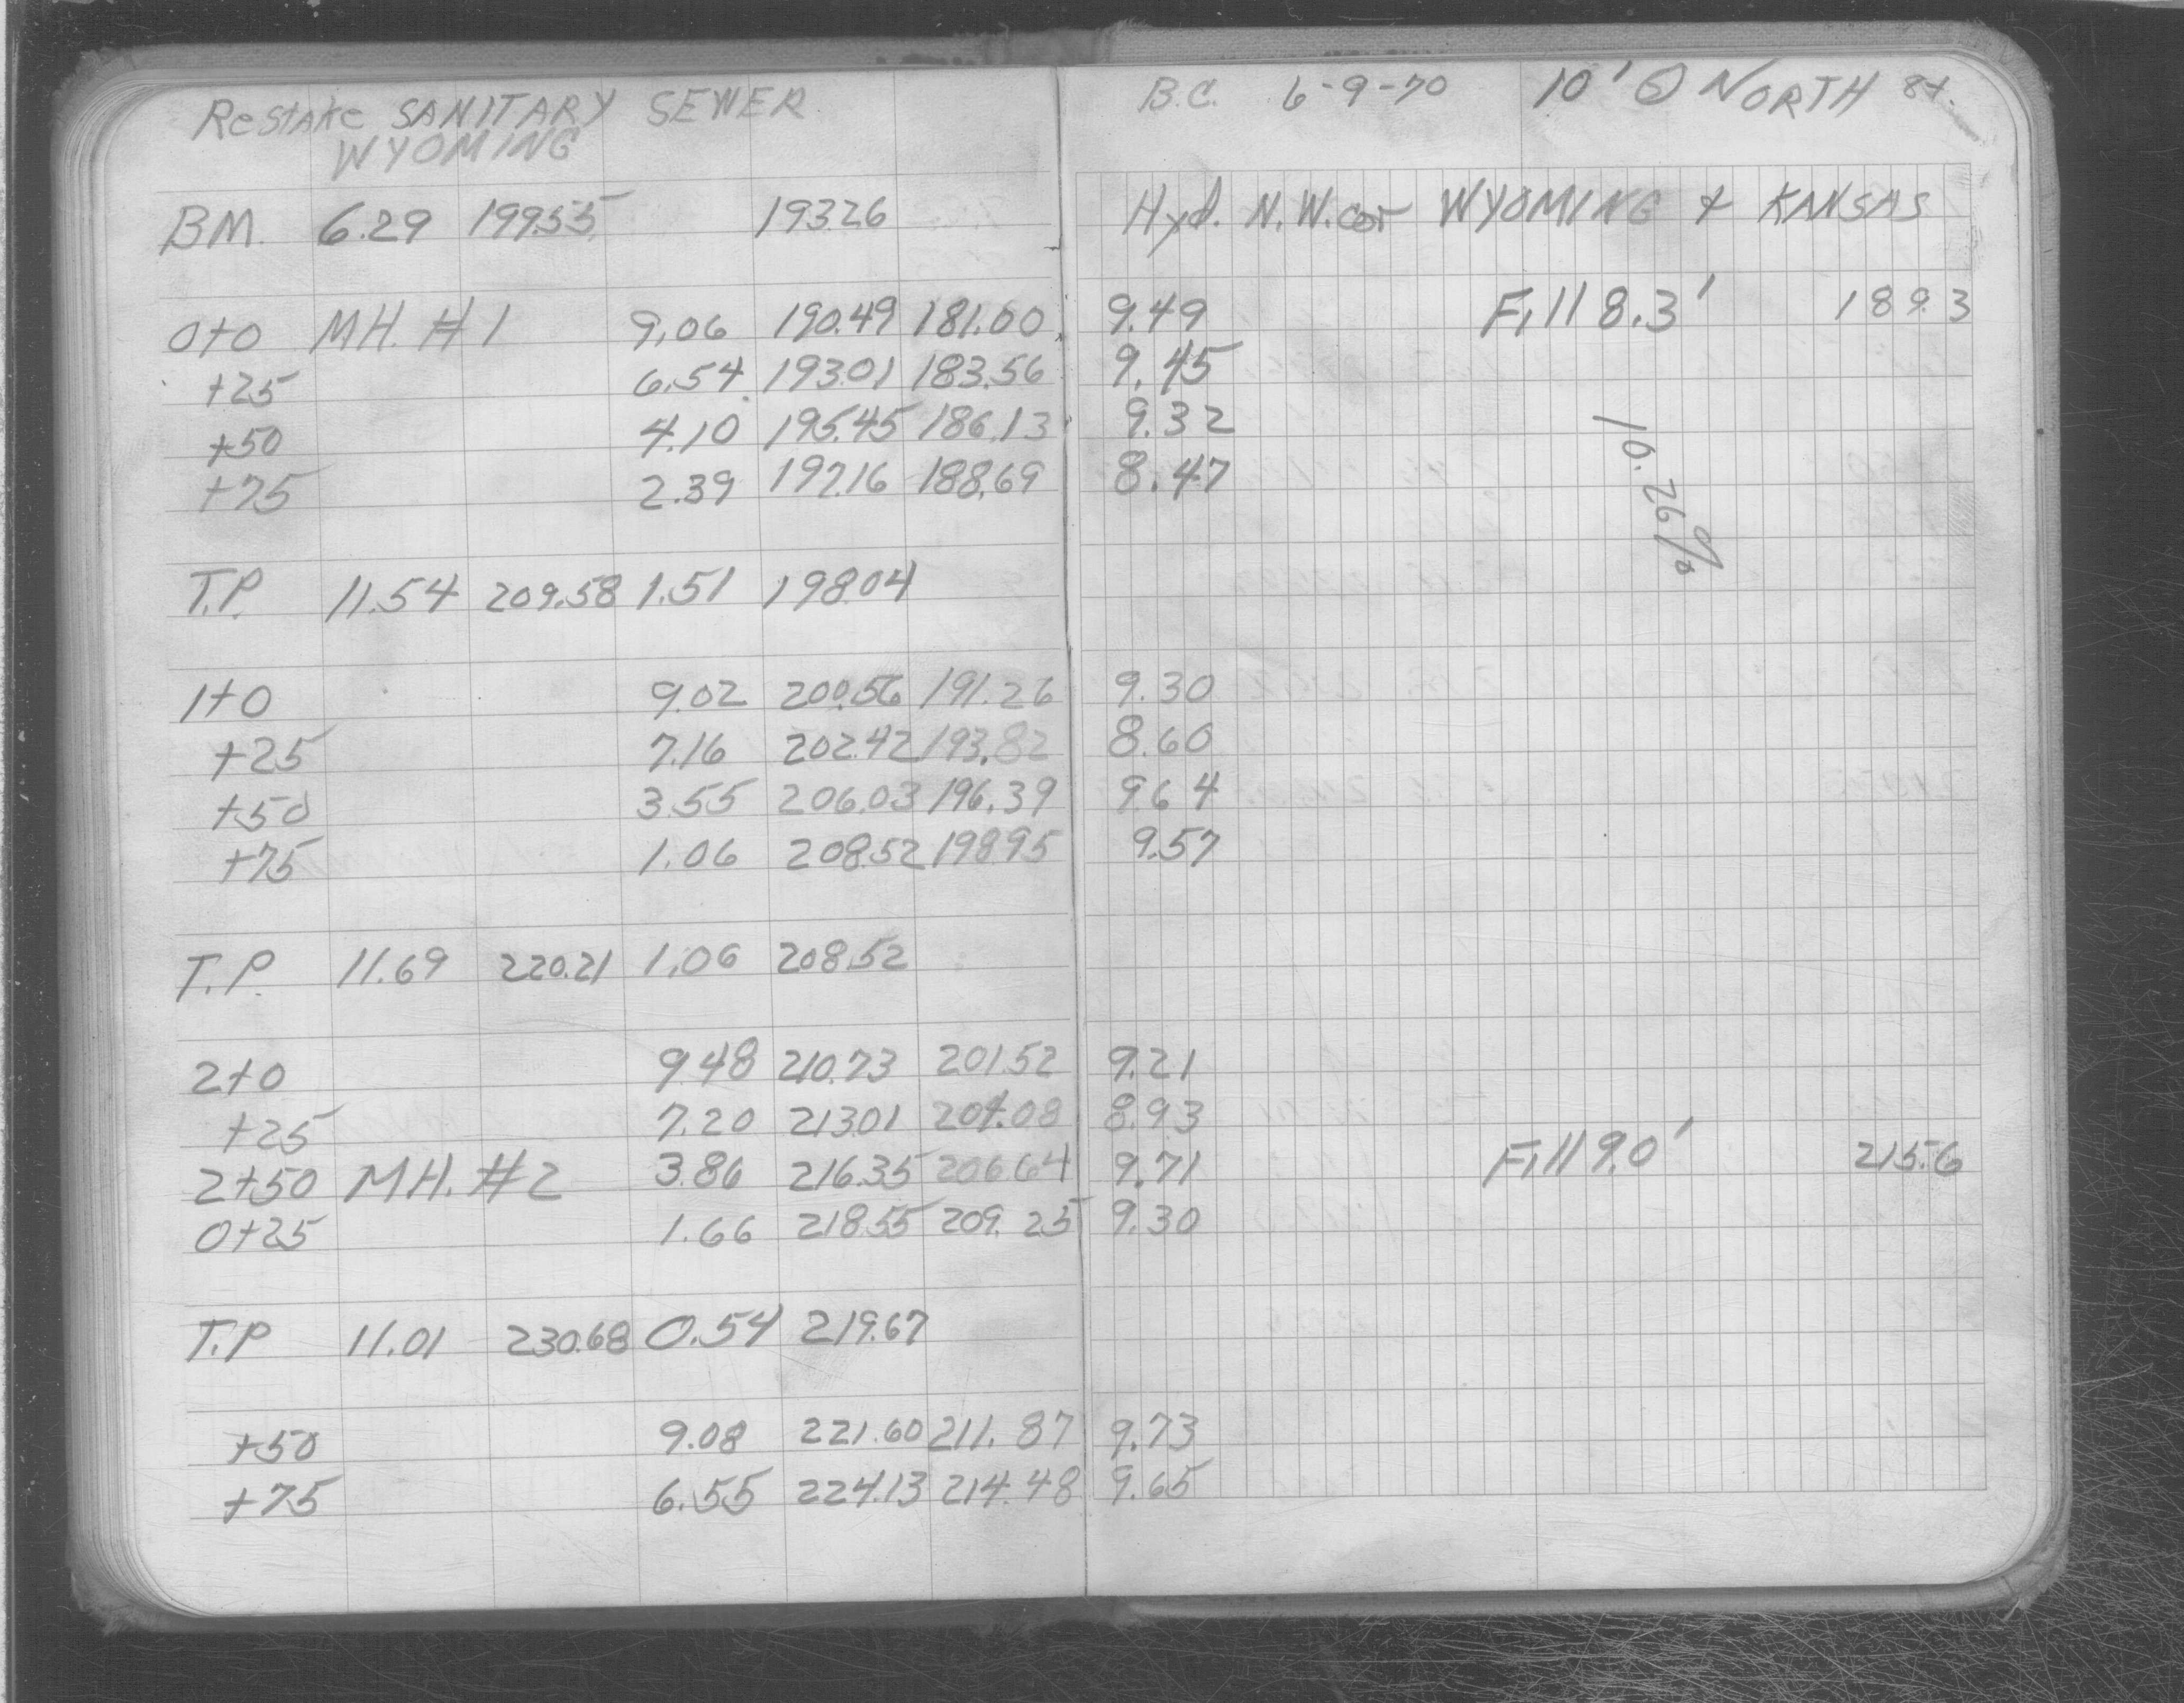 Restake SANITARY SEWER
WYOMING
B.C. 6-9-70 10' NORTH
BM. 6.29 199.55 193.26 Hyd. N.W. cor WYOMING + KANSAS
0+0 MH. #1 9.06 190.49 181.00 9.49 Fill 8.3' 189.3
+25 6.54 193.01 183.56 9.45
+50 4.10 195.45 186.13 9.32
+75 2.39 197.16 188.69 8.47
10.26%
T.P. 11.54 209.58 1.51 198.04
1+0 9.02 200.56 191.26 9.30
+25 7.16 202.42 193.82 8.60
+50 3.55 206.03 196.39 9.64
+75 1.06 208.52 198.95 9.57
T.P. 11.69 220.21 1.06 208.52
2+0 9.48 210.73 201.52 9.21
+25 7.20 213.01 204.08 8.93
2+50 MH. #2 3.86 216.35 206.64 9.71 Fill 9.0' 215.6
0+25 1.66 218.55 209.25 9.30
T.P 11.01 230.68 0.54 219.67
+50 9.08 221.60 211.87 9.73
+75 6.55 224.13 214.48 9.65